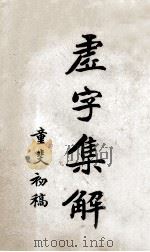 虛字集解
童斐初稿
mtoou.info